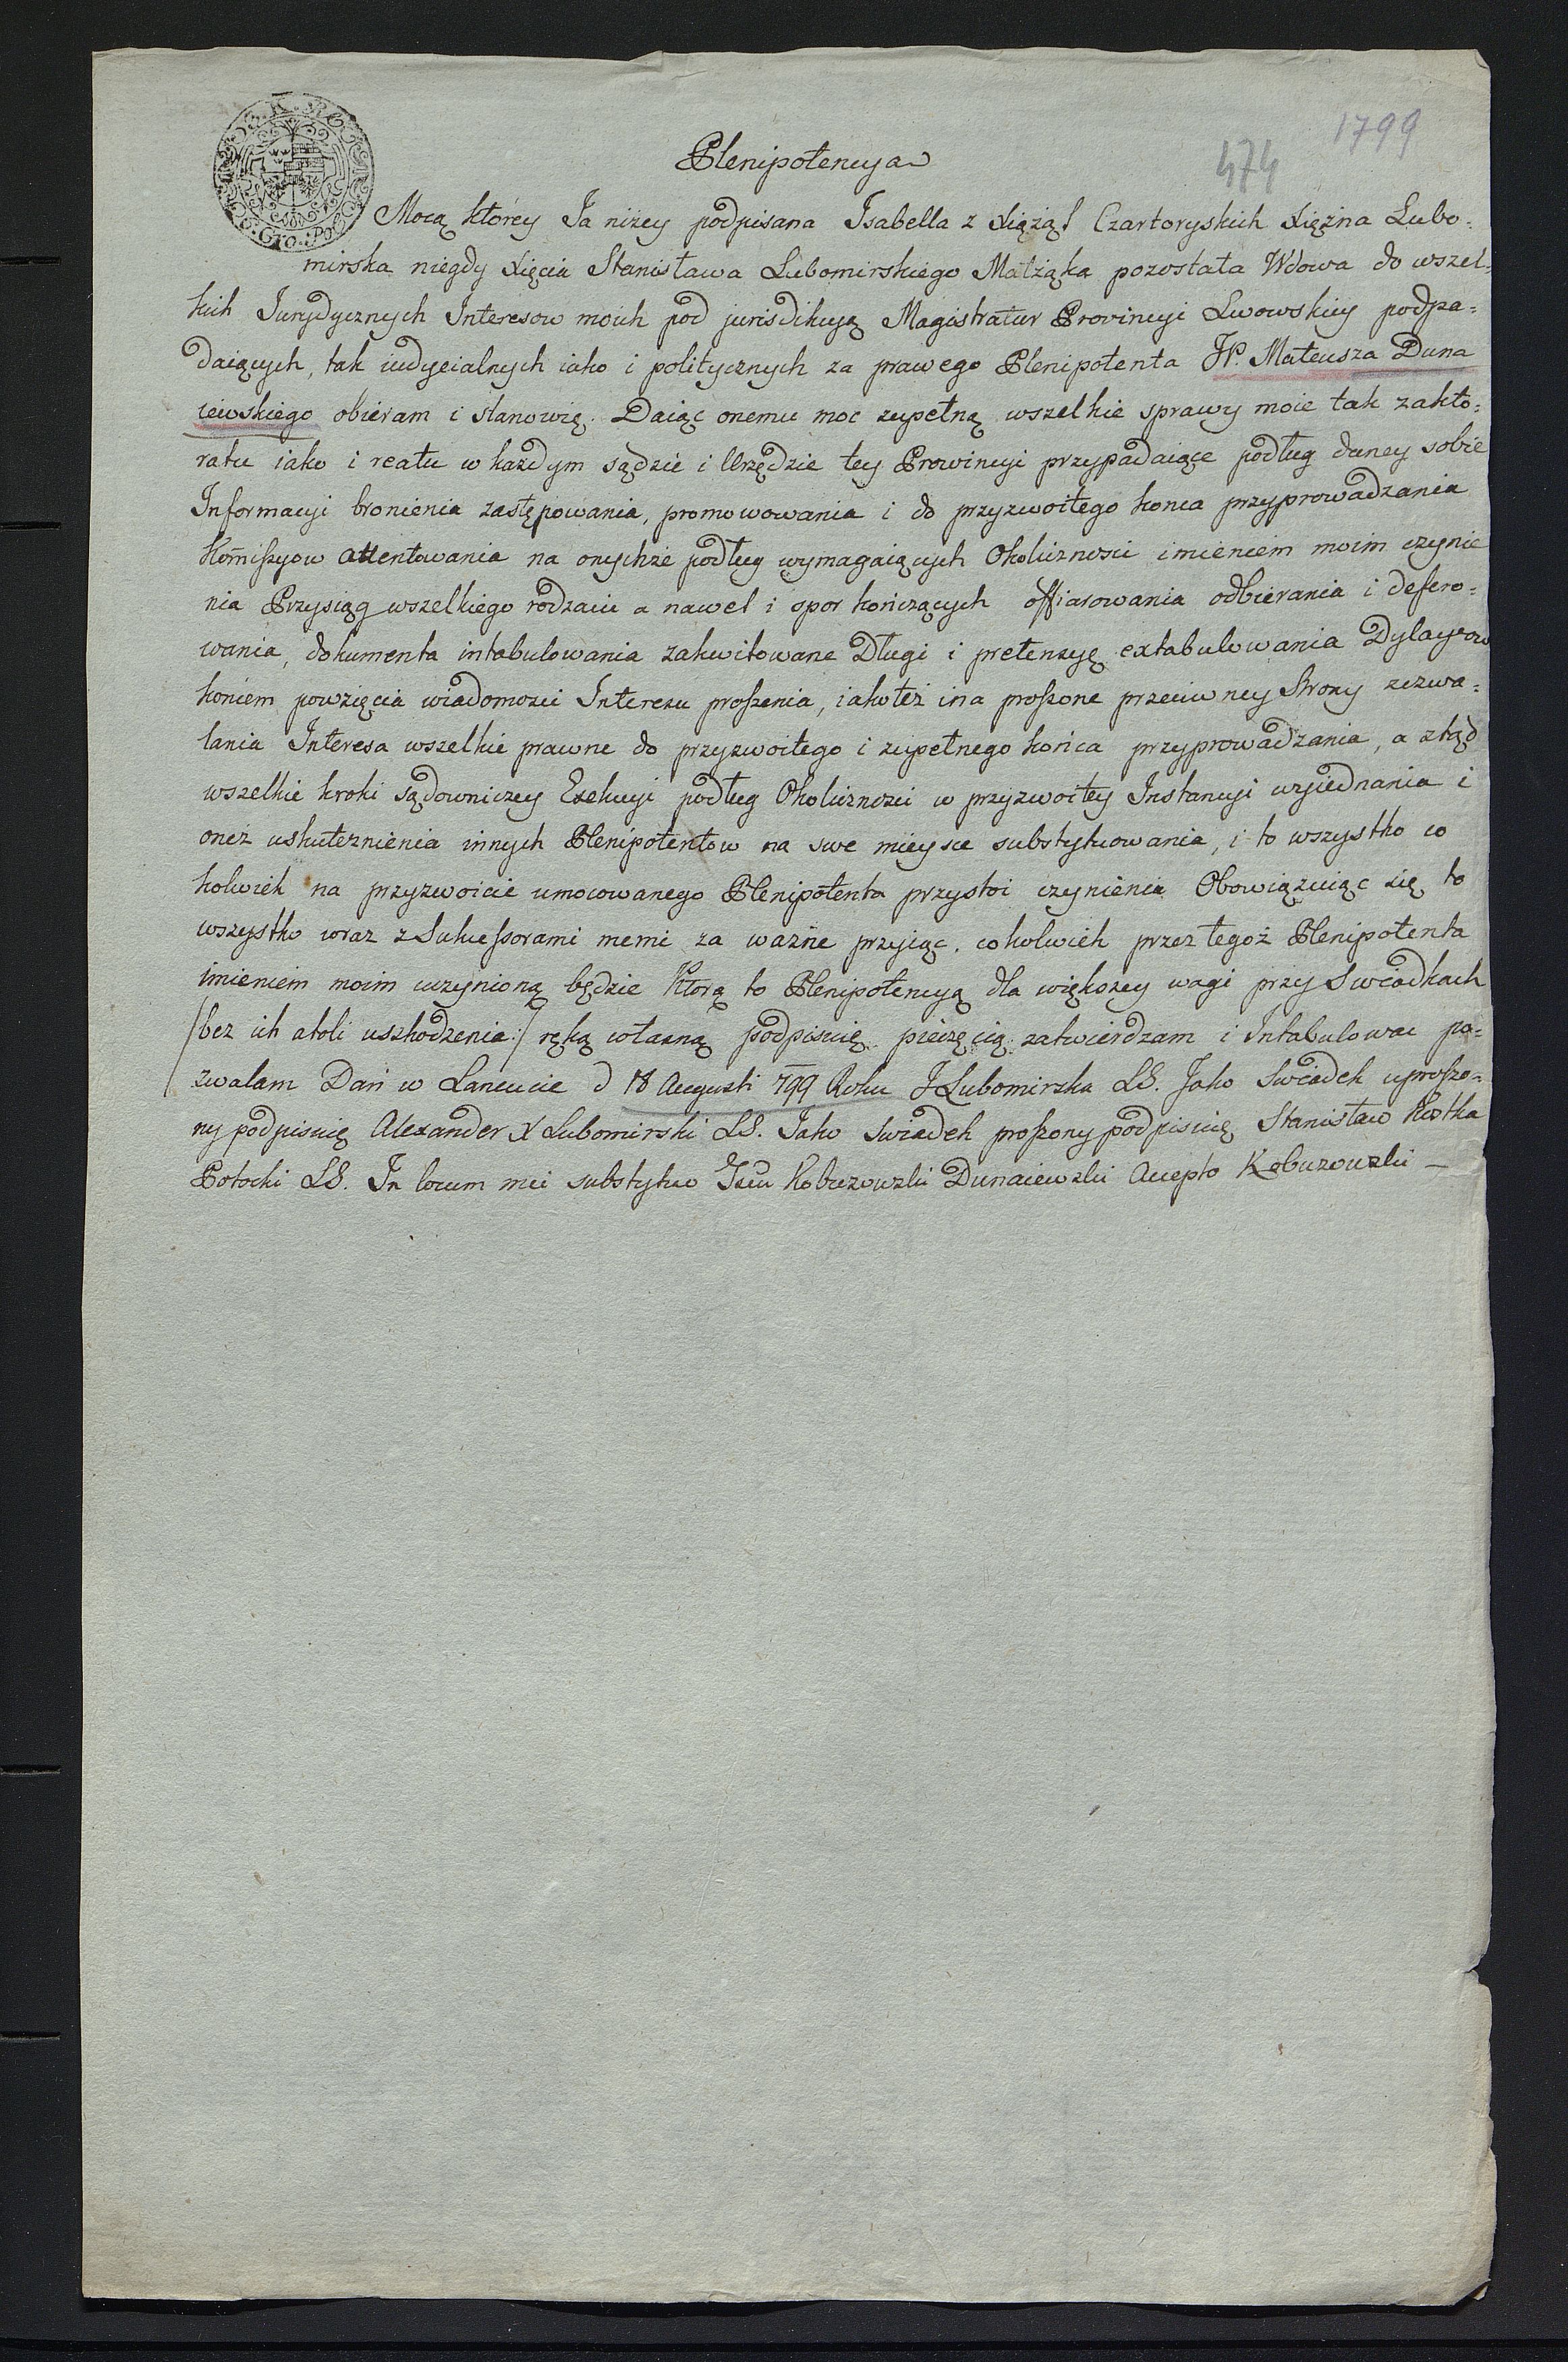 1799
474
Plenipotencya
Mocą ktorey Ja niżey podpisana Isabella z Xiążąt Czartoryskich Xiężna Lubo=
mirska niegdy Xięcia Stanisława Lubomirskiego Małżąka pozostała Wdowa do wszel=
kich Jurydycznych Interesow moich pod jurisdikcyą Magistratur Prowincyi Lwowskiey podpa=
daiących, tak iudycialnych iako i politycznych za prawego Plenipotenta JP. Mateusza Duna
iewskiego obieram i stanowię. Daiąc onemu moc zupełną wszelkie sprawy moie tak zakto=
ratu iako i reatu w każdym sądzie i Urzędzie tey Prowincyi przypadaiące podług daney sobie
Informacyi bronienia zastępowania, promowowania i do przyzwoitego konca przyprowadzania
Kom̃issyow attentowania na onychże podług wymagaiących Okoliznosci imieniem moim czynie
nia Przysiąg wszelkiego rodzaiu a nawet i spor kończących offiarowania odbierania i defero=
wania, dokumenta intabulowania zakwitowane Długi i pretensyę extabulowania Dylacyow
koncem powzięcia wiadomosci Interesu proszenia, iakoteż ina proszone przeciwney Strony zezwa=
lania Interesa wszelkie prawne do przyzwoitego i zupełnego końca przyprowadzania, a ztąd
wszelkie kroki sądowniczey Exekucyi podług Okoliznosci w przyzwoitey Instancyi wyiednania i
oneż uskutecznienia innych Plenipotentow na swe mieysce substytuowania, i to wszystko co
kolwiek na przyzwoicie umocowanego Plenipotenta przystoi czynienia Obowiązuiąc się to
wszystko wraz z Sukcessorami memi za ważne przyiąc, cokolwiek przez tegoż Plenipotenta
imieniem moim uczynioną będzie Którą to Plenipotencyą dla większey wagi przy Swiadkach
/bez ich atoli uszkodzenia:/ ręką własną podpisuię pieczęcią zatwierdzam i Intabulowac po=
zwalam Dań w Lancucie d 18 Augusti 799 Roku J Lubomirska LS. Jako Swiadek uproszo=
ny podpisuię Alexander X Lubomirski LS. Jako Swiadek proszony podpisuię Stanisław Kostka
Potocki LS. In locum mei substytuo Kobuzowski Dunaiewski Accepto Kobuzowski —